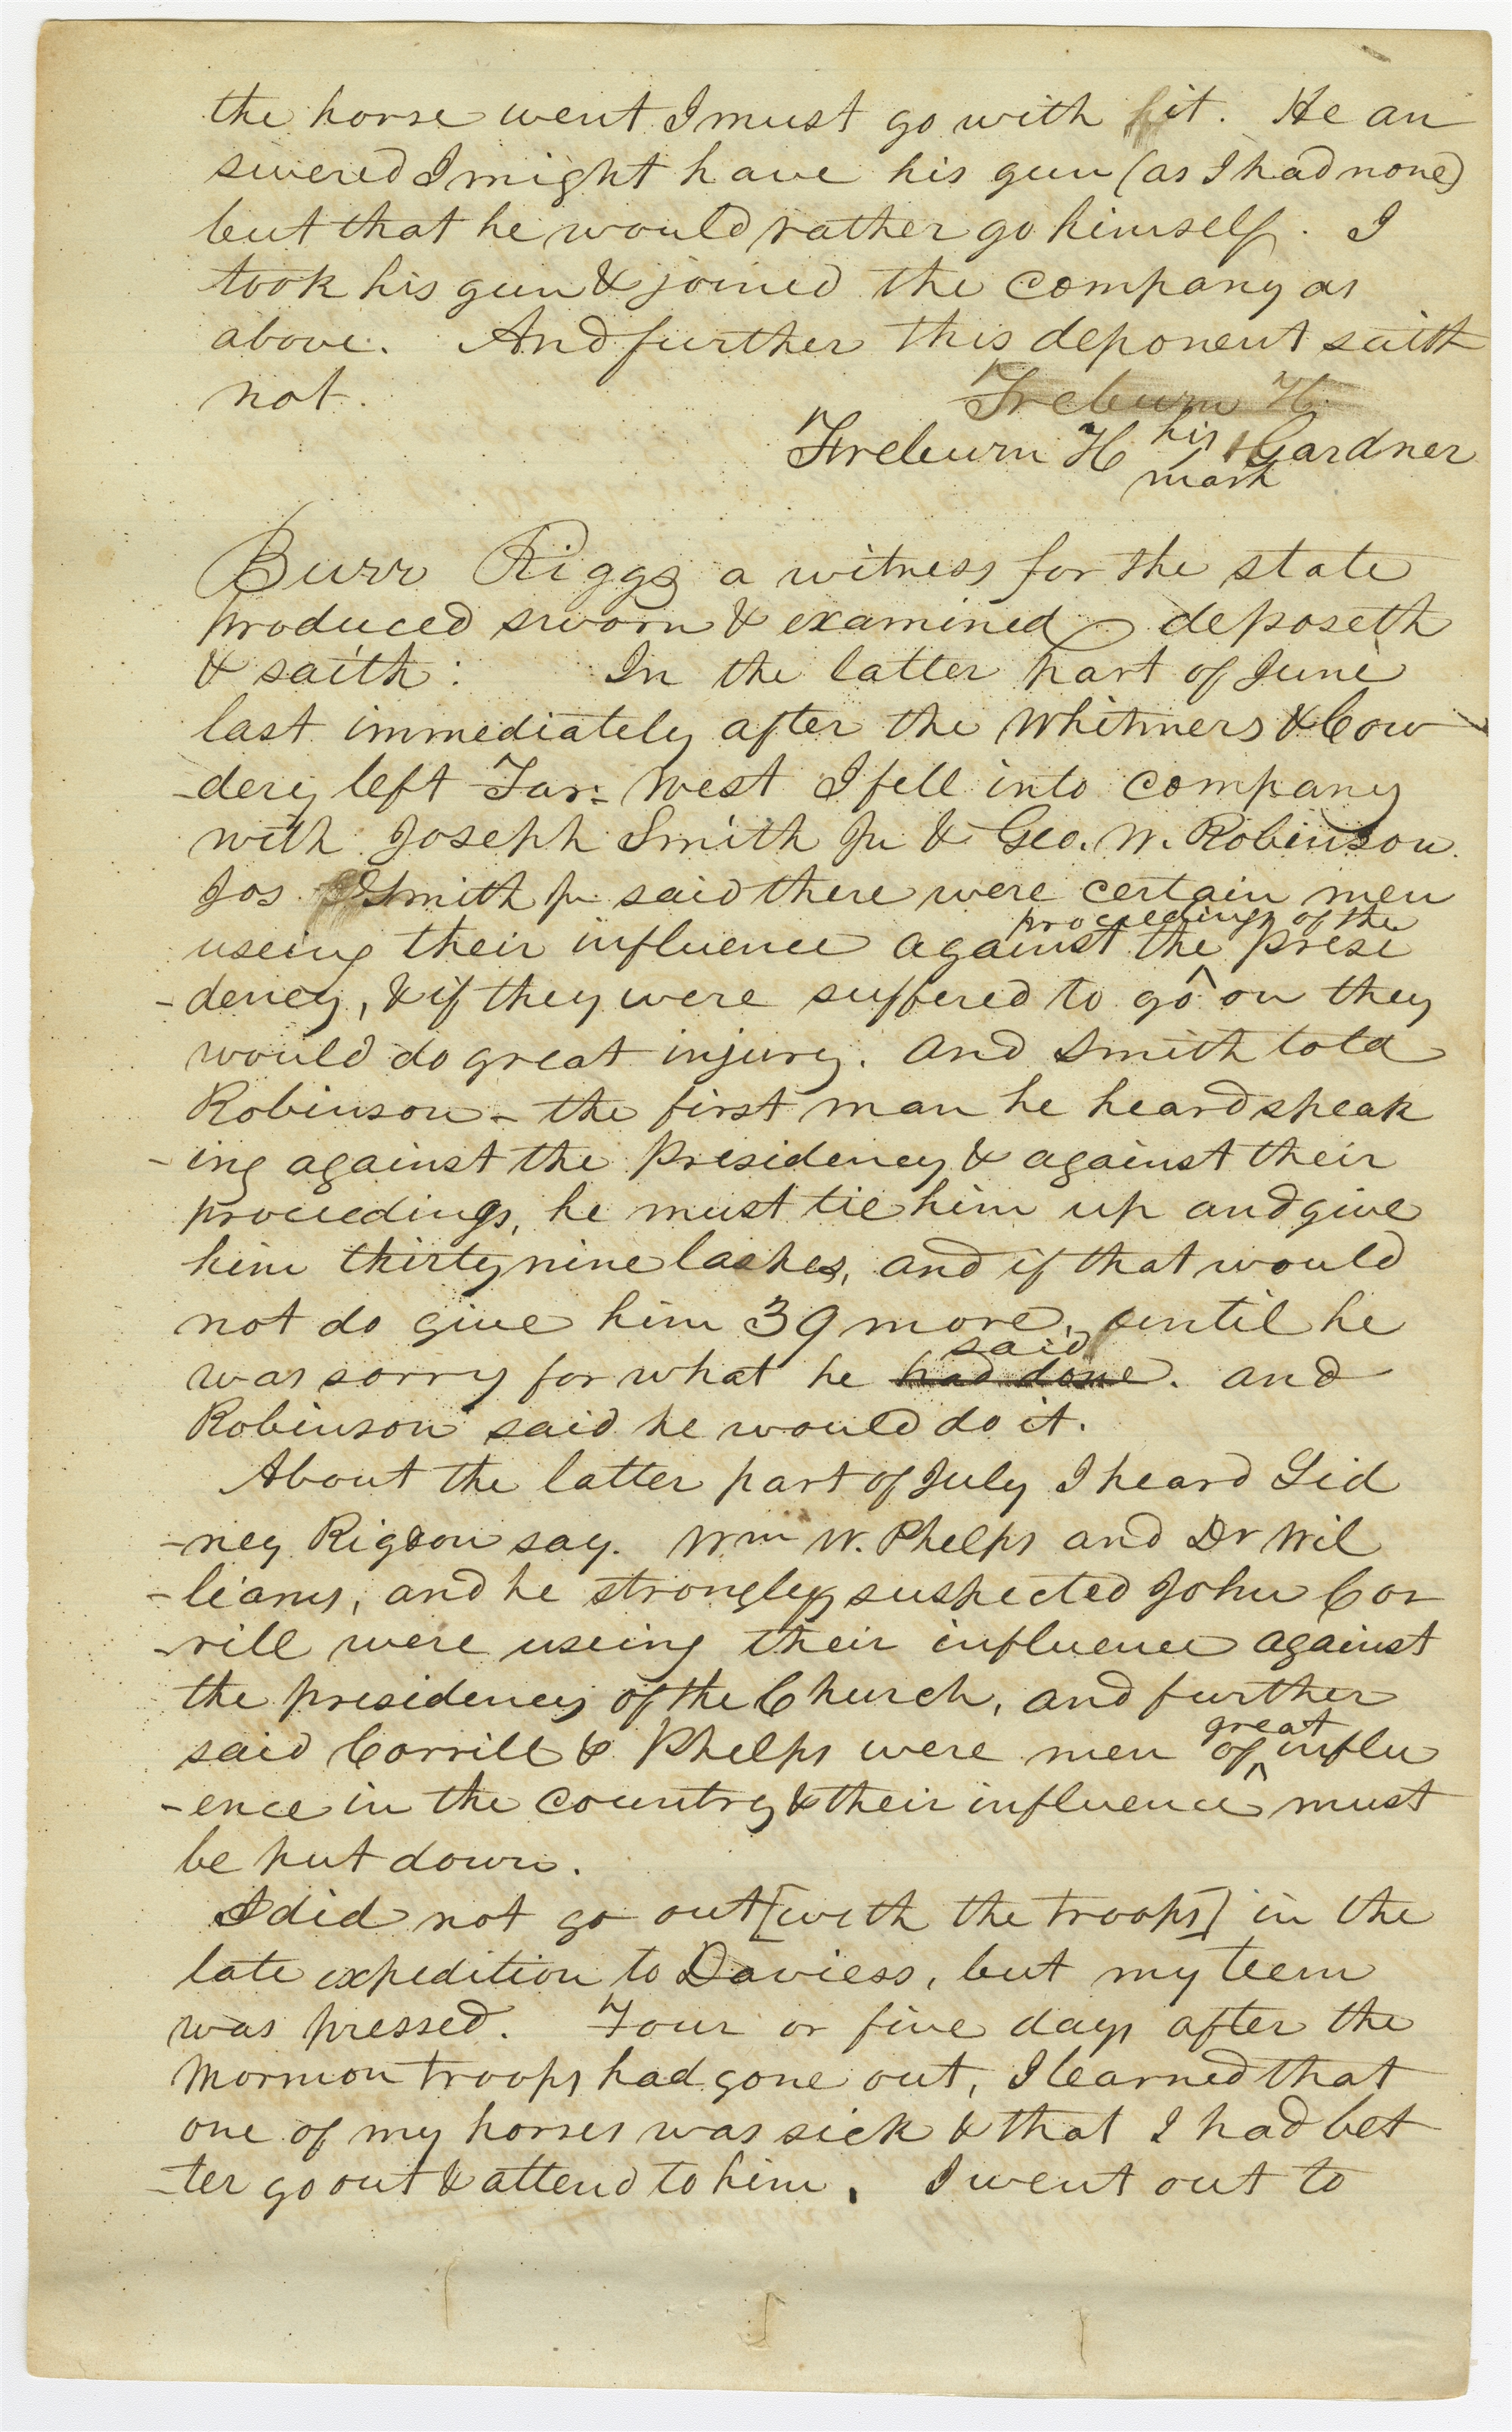 the horse went I must go with it. He an
swered I might have his gun (as I had none)
but that he would rather go himself. I
took his gun & joined the company as
above. And further this deponent saith
not. Freburn H.
Freburn H his Gardner
mark
Burr Riggs a witness for the state
produced sworn & examined deposeth
& saith: In the latter part of June
last immediately after the Whitmers & Cow
-dery left Far-West I fell into company
with Joseph Smith Jr & Geo. W. Robinson.
Jos Smith Jr said there were certain men
proceedings of the
useing their influence against the presi
-dency, & if they were suffered to go on they
would do great injury. And Smith told
Robinson - the first man he heard speak
-ing against the Presidency & against their
proceedings, he must tie him up and give
him thirty nine lashes, and if that would
not do give him 39 more, until he
said
was sorry for what he had done. and
Robinson said he would do it.
About the latter part of July I heard Sid
-ney Rigdon say. Wm W. Phelps and Dr Wil
-liams, and he strongly suspected John Cor
-rill were useing their influence against
the presidency of the Church, and further
great
said Corrill & Phelps were men of influ
-ence in the country & their influence must
be put down.
I did not go out [with the troops] in the
late expedition to Daviess, but my teem
was pressed. Four or five days after the
Mormon troops had gone out, I learned that
one of my horses was sick & that I had bet
-ter go out & attend to him. I went out to